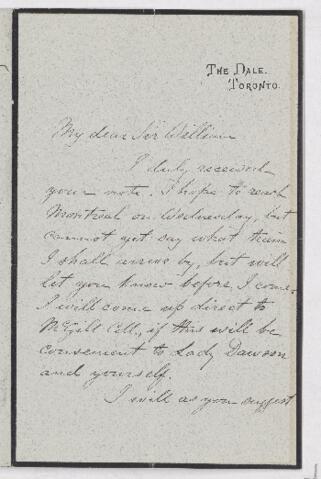 THE DALE.
TORONTO.
My dear Sir William
I duly received
your note. I hope to reach
Montreal on Wednesday, but
cannot yet say what train
I shall arrive by, but will
let you know before I come.
I will come up direct to
McGill Coll, if this will be
convenient to Lady Dawson
and yourself.
I will as you suggest